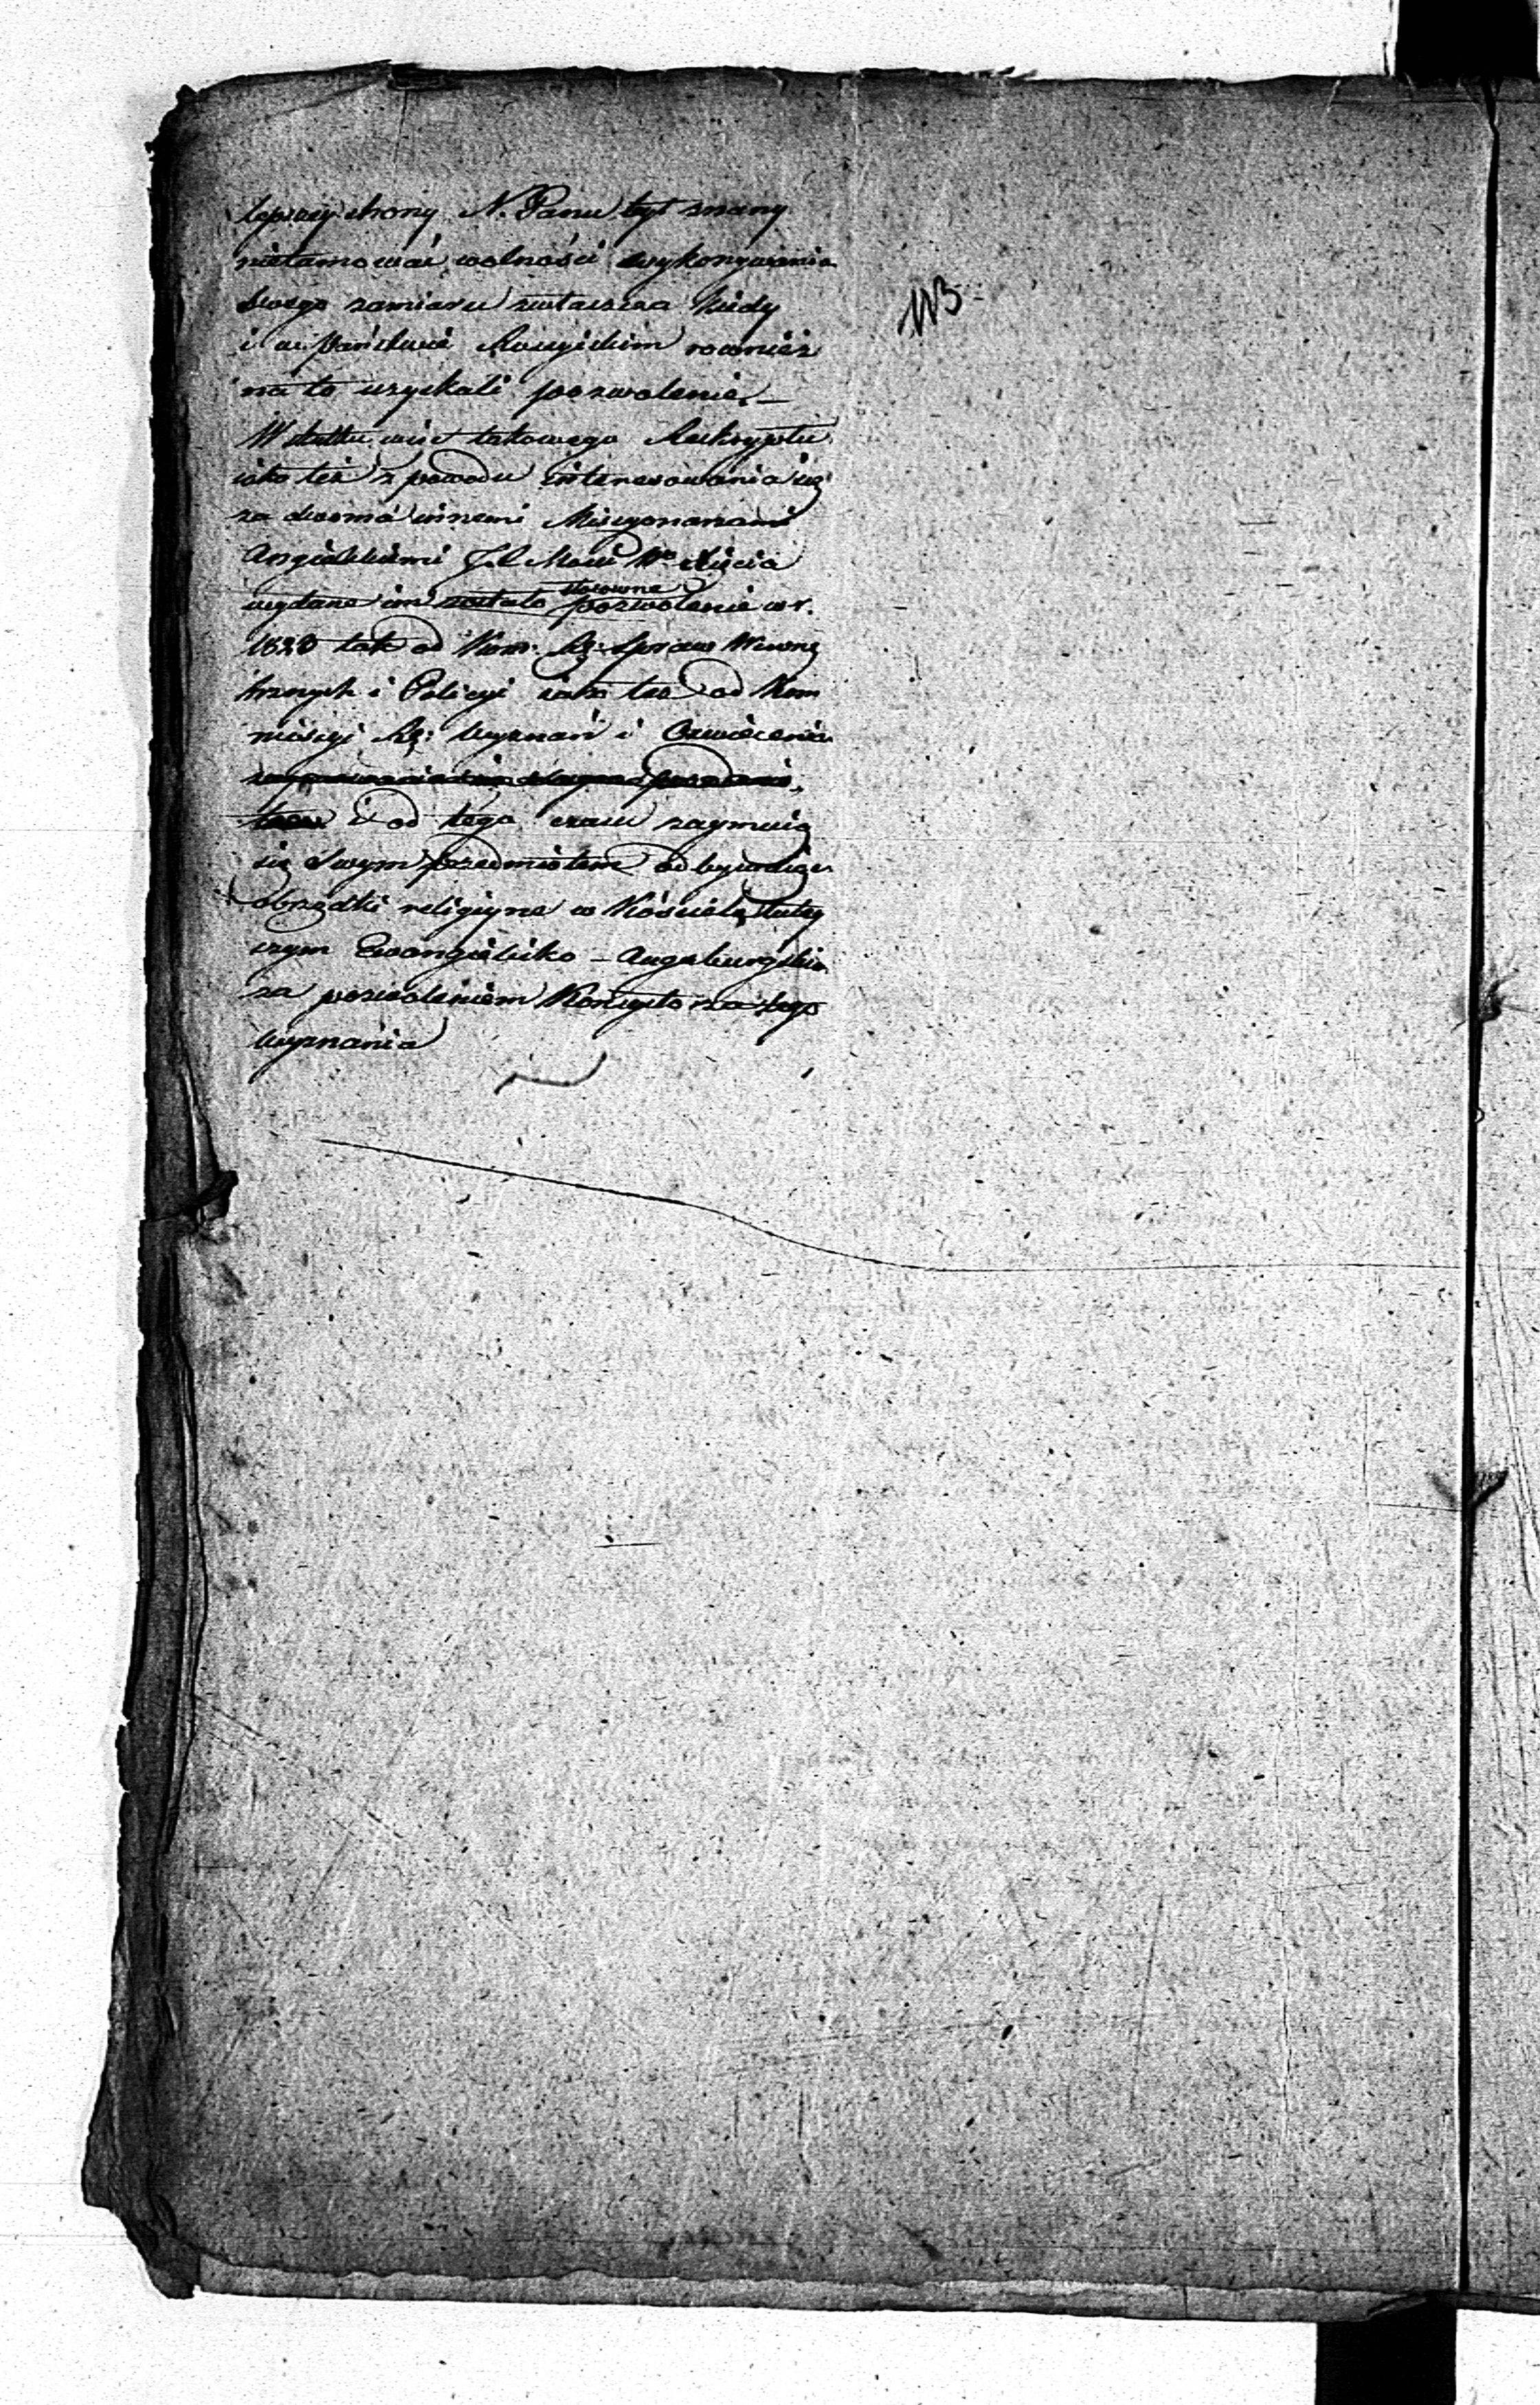 lepszey strony N. Panu był znany
nietamować wolności wykonywania
swego zamiaru zwłaszcza kiedy
i w Państwie Rossyiskim rownież
na to uzyskali pozwolenie. —
W skutku więc takowego Reskryptu
iako też z powodu interesowania się
za dwoma innemi Missyonarzami
Angielskiemi
stosowne
wydane im zostało pozwolenie w r.
tak od Kom: Rz: Spraw Wewnę
trznych i Policyi iako też od Kom
missyi Rz: Wyznań i Oswiecenia
i od tego czasu zaymuią
się swym przedmiotem odbywaiąc
obrządki religiyne w Kościele tutey
szym Ewangielicko - Augsburgskim
za pozwoleniem Konsystorza tego
Wyznania
113